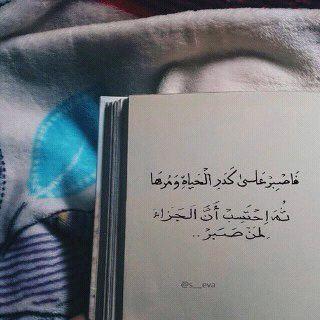 فَاصْبِرْ عَلَىٰ كَدَرِ الْحَيَاةِ وَمُرِّهَا
ثُمَّ احْتَسِبْ أَنَّ الْجَزَاءَ
لِمَنْ صَبَرْ ..
@s__eva